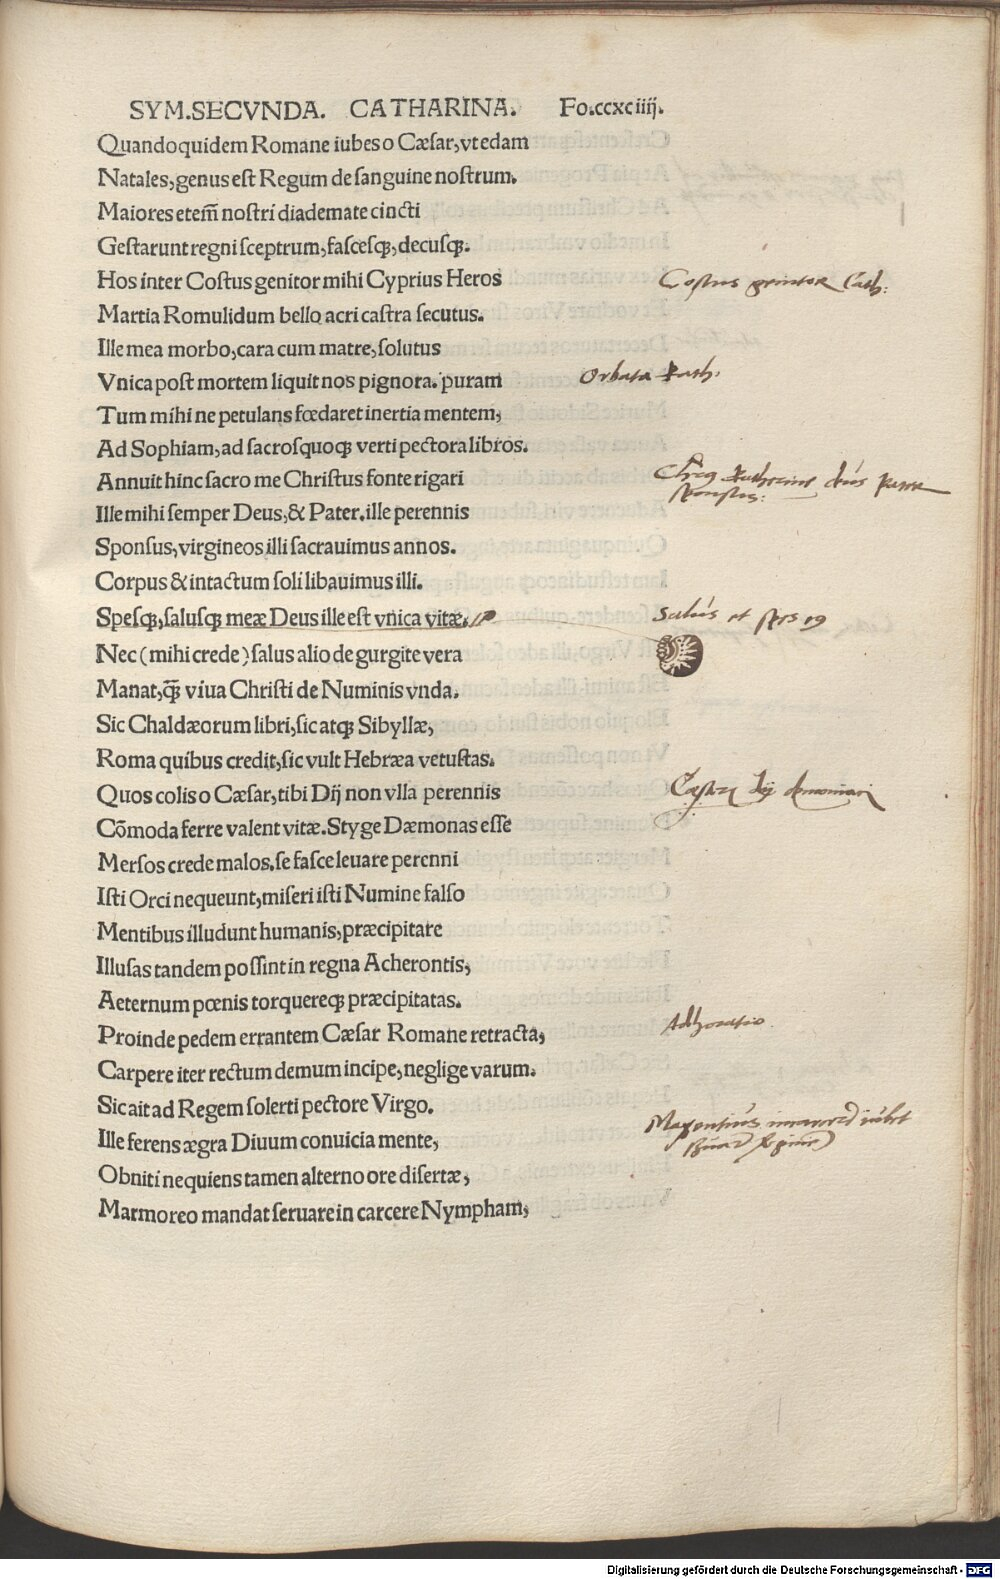 SYM.SECVNDA. CATHARINA. Fo.ccxciiij.
Quandoquidem Romane iubes o Cæsar, vt edam
Natales, genus est Regum de sanguine nostrum.
Maiores etem̄ nostri diademate cincti
Gestarunt regni sceptrum, fascesq;, decusq;.
Hos inter Costus genitor mihi Cyprius Heros
Costus genitor Cath.
Martia Romulidum bello acri castra secutus.
Ille mea morbo, cara cum matre, solutus
Vnica post mortem liquit nos pignora. puram
Orbata Kath.
Tum mihi ne petulans fœdaret inertia mentem,
Ad Sophiam, ad sacrosquoq; verti pectora libros.
Annuit hinc sacro me Christus fonte rigari
Katherine deus pater
sponsus:
Ille mihi semper Deus, & Pater. ille perennis
Sponsus, virgineos illi sacrauimus annos.
Corpus & intactum soli libauimus illi.
Spesq;, salusq; meæ Deus ille est vnica vitæ.
Salus et spes
Nec (mihi crede) salus alio de gurgite vera
Manat, q̃ viua Christi de Numinis vnda.
Sic Chaldæorum libri, sic atq; Sibyllæ,
Roma quibus credit, sic vult Hebræa vetustas.
Quos colis o Cæsar, tibi Dij non vlla perennis
dij
Cōmoda ferre valent vitæ. Styge Dæmonas esse
Mersos crede malos. se fasce leuare perenni
Isti Orci nequeunt, miseri isti Numine falso
Mentibus illudunt humanis, præcipitare
Illusas tandem possint in regna Acherontis,
Aeternum pœnis torquereq; præcipitatas.
Proinde pedem errantem Cæsar Romane retracta,
Adhortatio
Carpere iter rectum demum incipe, neglige varum.
Sic ait ad Regem solerti pectore Virgo.
Maxentius iubet
Ille ferens ægra Diuum conuicia mente,
Obniti nequiens tamen alterno ore disertæ,
Marmoreo mandat seruare in carcere Nympham,
Digitalisierung gefördert durch die Deutsche Forschungsgemeinschaft - DFG